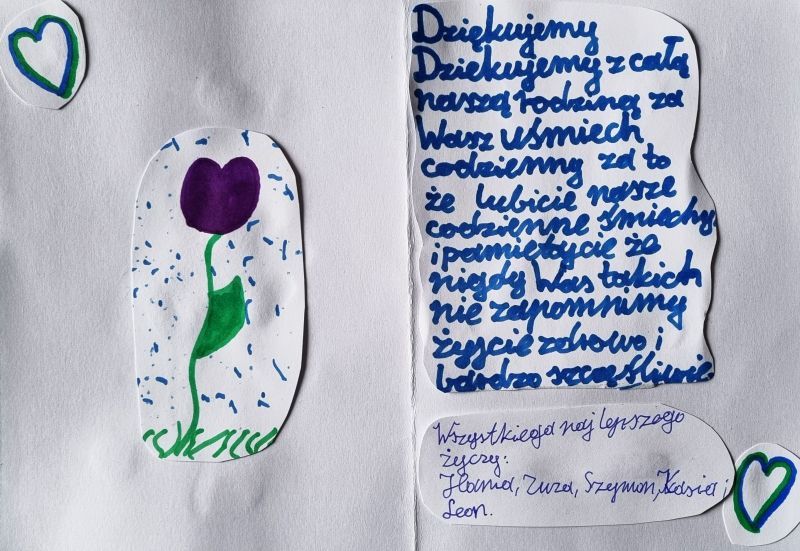 Dziękujemy
Dziękujemy z całą
naszą rodziną za
Wasz uśmiech
codzienny za to
że lubicie nasze
codzienne śmiechy
i pamiętajcie że
nigdy Was takich
nie zapomnimy
żyjcie zdrowo i
bardzo szczęśliwie
Wszystkiego najlepszego
życzy:
Hania, Zuza, Szymon, Kasia i
Leon.